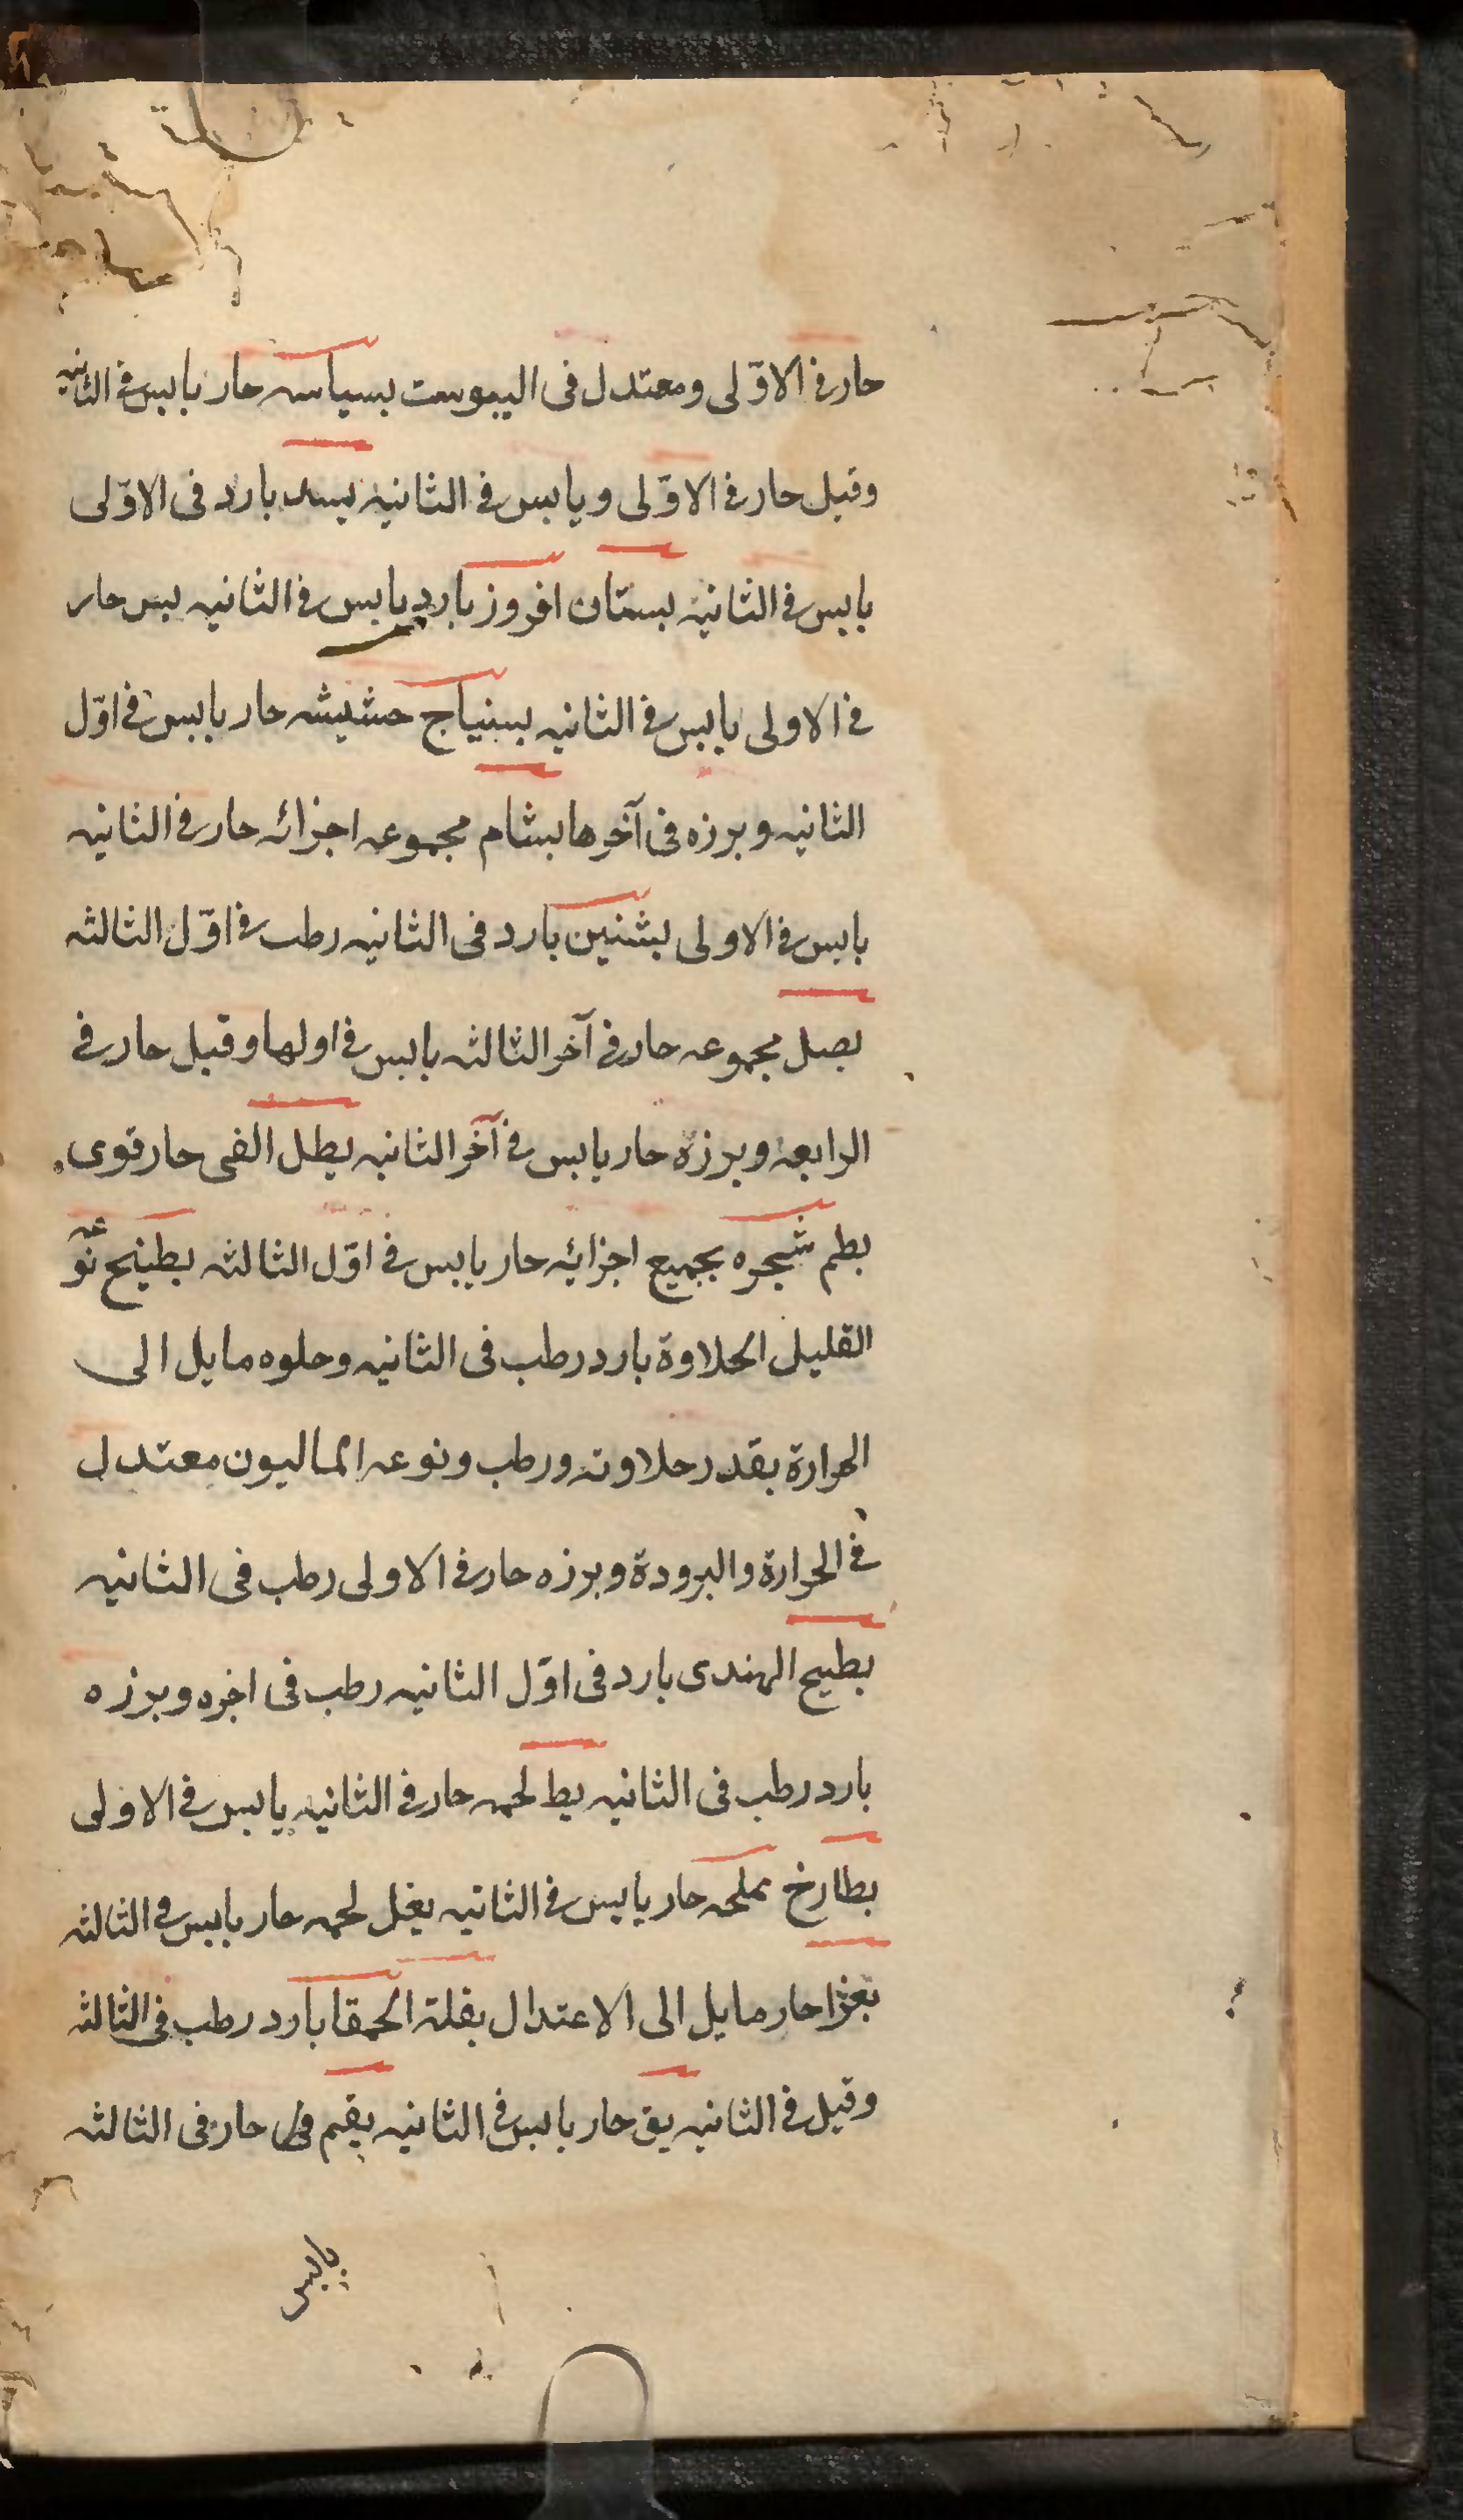 حار فی الاوّلی ومعتدل فی الیبوست بسباسه حار یابس فی الثانیه
وقیل حار فی الاوّلی ویابس فی الثانیه بسد بارد فی الاوّلی
یابس فی الثانیه بستان افروز بارد یابس فی الثانیه بس حار
فی الاولی یابس فی الثانیه بسنیاج حشیشه حار یابس فی اوّل
الثانیه وبرزه فی آخرها بشام مجموعه اجزائه حار فی الثانیه
یابس فی الاولی بشنین بارد فی الثانیه رطب فی اوّل الثالثه
بصل مجموعه حار فی آخر الثالثه یابس فی اولها وقیل حار فی
الرابعه وبرزه حار یابس فی آخر الثانیه بطل الفی حار قوی
بطم شجره بجمیع اجزایه حار یابس فی اوّل الثالثه بطیخ نوعه
القلیل الحلاوة بارد رطب فی الثانیه وحلوه مایل الی
الحرارة بقدر حلاوته ورطب ونوعه المالیون معتدل
فی الحرارة والبرودة وبرزه حار فی الاولی رطب فی الثانیه
بطیح الهندی بارد فی اوّل الثانیه رطب فی اخره وبرزه
بارد رطب فی الثانیه بط لحمه حار فی الثانیه یابس فی الاولی
بطارخ مملحه حار یابس فی الثانیه بغل لحمه حار یابس فی الثالثه
بغرا حار مایل الی الاعتدال بقلة الحمقا بارد رطب فی الثالثه
وقیل فی الثانیه بق حار یابس فی الثانیه بقم حار فی الثالثه
یابس